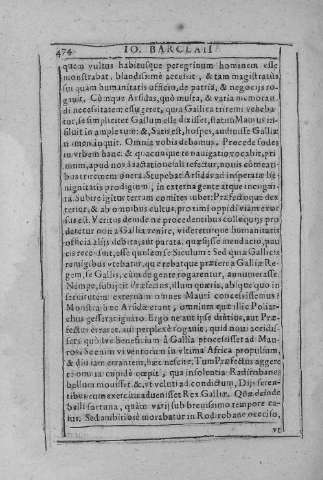 474 IO. BARCLAII
quem vultus habitusque peregrinum hominem esse
monstrabat, blandissimè accessit, & tam magistratus
sui quàm humanitatis officio, de patria, & negocijs ro-
gauit. Cùmque Arsidas, quò multa, & varia memoran-
di necessitatem esset, quia Gallica triremi veheba-
tur, se simpliciter Gallum esse dixisset, statim Maurus in-
siluit in amplexum: &, Satis est, hospes, audiuisse Galliæ
nomen inquit. Omnia vobis debemus. Procede sodes
in vrbem hanc. & quacunque te nauigatio vocabit, pri-
mùm, apud nos
bat triremem onera. Stupebat Arsidas ad insperatæ be-
nignitatis prodigium, in externa gente atque incogni-
ta. Subire igitur terram comites iubet: Præfectioque dex-
terior, & ab omnibus cultus, proximi oppidi viam exor-
sus est. Veritus deinde ne procedentibus colloquijs pro-
detetur non a Gallia venire, videreturque humanitatis
officia alijs debita, aut parata, quæsisse mendacio, pau-
cis recensuit, esse quidem se Siculum: Sed quia Gallicis
remigibus vtebatur, quærebatque præterea Galliæ Re-
gem, se Gallis, cùm de gente rogarentur, annumerasse.
Nempe, subijcit Præfectus, illum quæris, ab quo in
seruitutem externam omnes Mauri concessissemus?
Monstra hec Arsidæ erant, omnium que illic Poliar-
chus gesserat ignaro. Ergo ne aut ipse diutiùs, aut Præ-
fectus erraret, aut perplexè rogauit, quid noui accidis-
set; quodve beneficium à Gallia processisset ad Mau-
ros? Seenim viventorum in vltima Africa propulsum,
& diu tam errantem, hæc nescire. Tum Præfectus aggere
omnia cupidè cœpit, qua insolentia Radirobanes
bellum mouisset. &, vt veluti ad condictum, Dijs feren-
tibus cum exercitu aduenisset Rex Galliæ. Quæ deinde
belli fortuna, quàm varij sub breuissimo tempore ca-
sus. Sed ambitiosè morabatur in Radirobane occiso,
vt